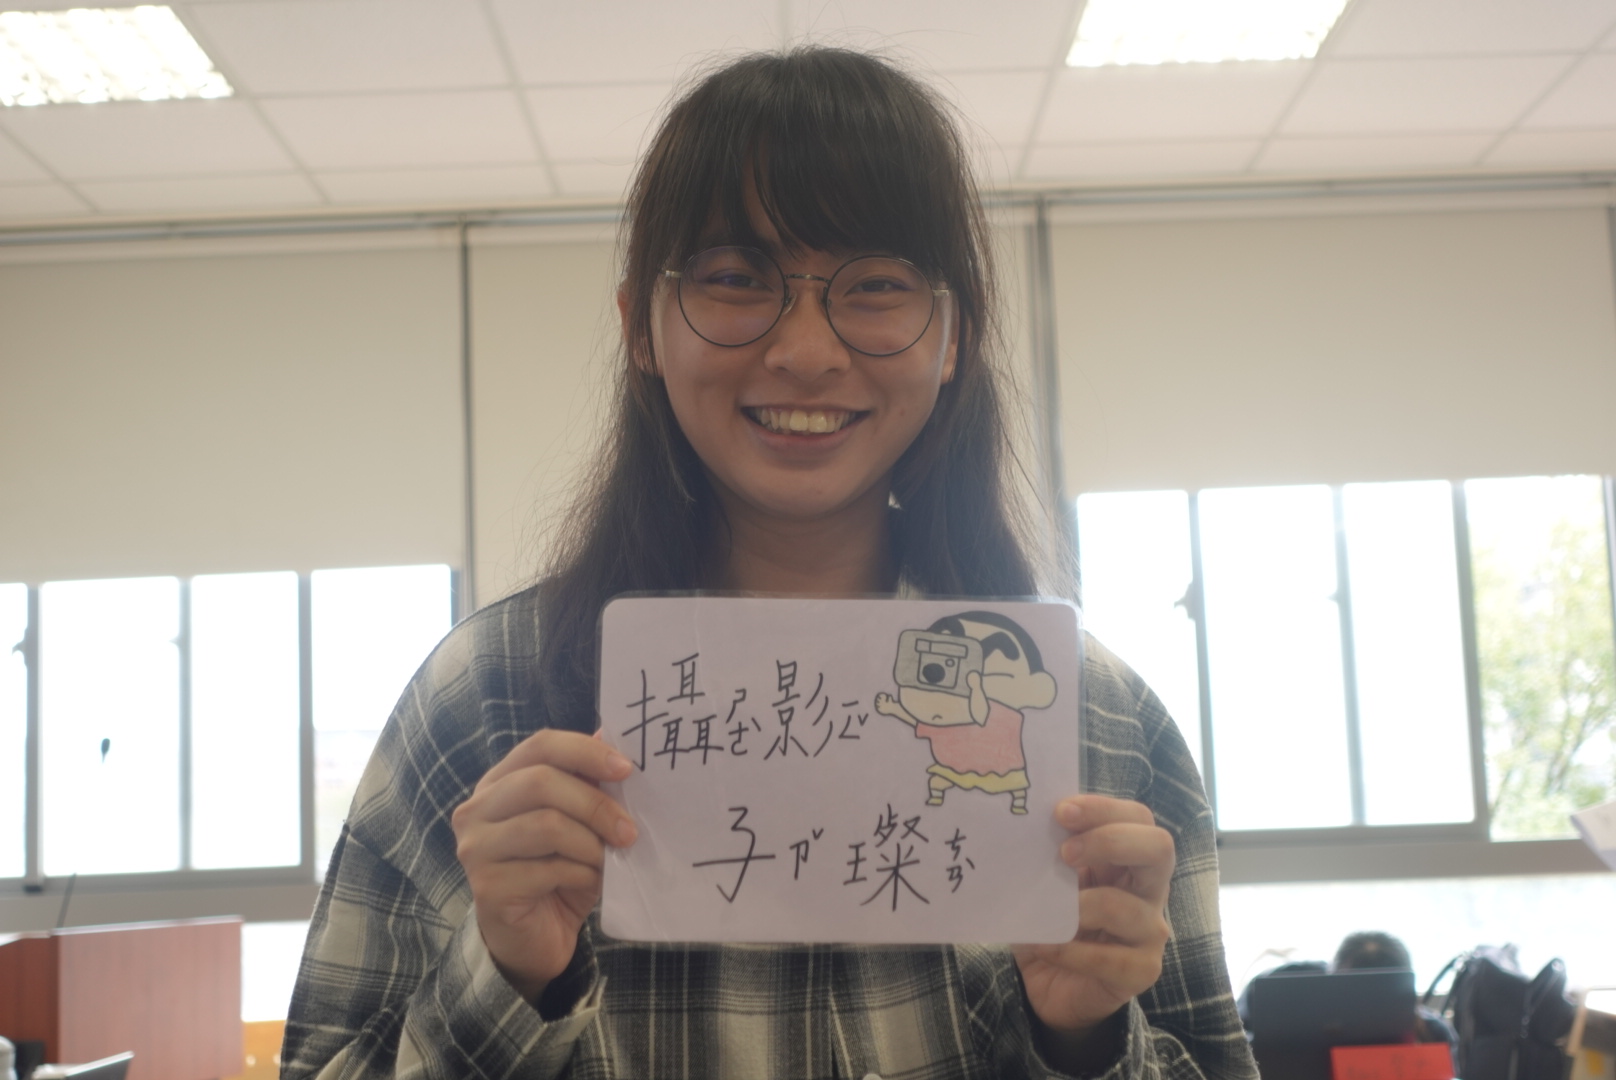 攝ㄕㄜˋ影ㄧㄥˇ
子ㄗˇ璨ㄘㄢˋ